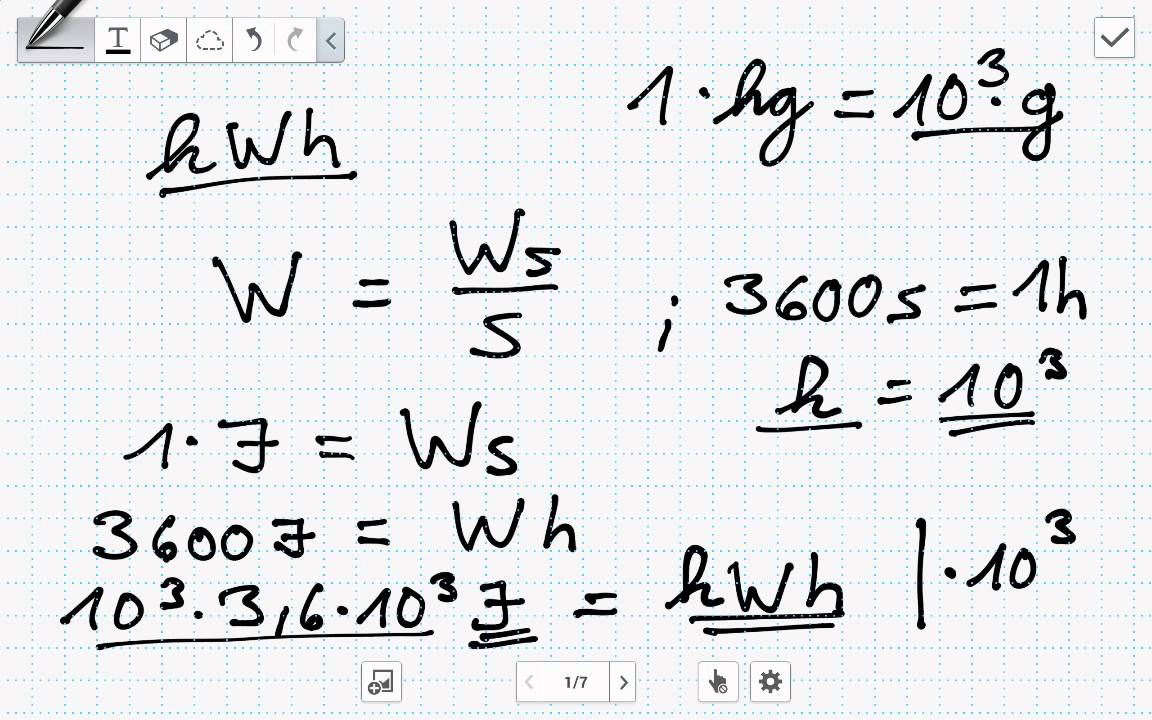 T
1 · kg = 10³ · g
kWh
W = Ws/s ; 3600s = 1h
k = 10³
1 · J = Ws
3600 J = Wh
10³ · 3,6 · 10³ J = kWh | · 10³
1/7